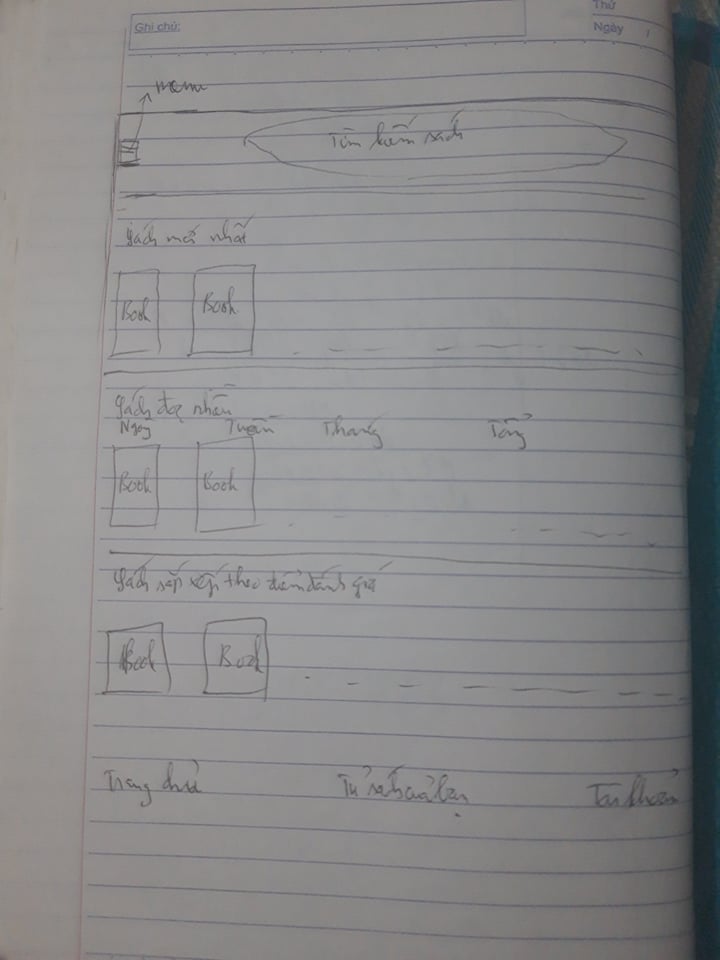 Ghi chú:
Thứ
Ngày
menu
Tìm kiếm sách
Sách mới nhất
Book Book
Sách đọc nhiều
Ngày Tuần Tháng Tổng
Book Book
Sách sắp xếp theo điểm đánh giá
Book Book
Trang chủ Tủ sách của bạn Tài khoản